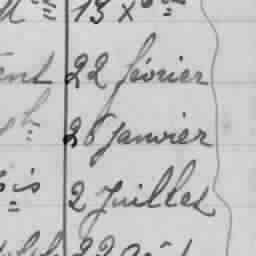 13 Xbre
ent 22 février
26 Janvier
is 2 Juillet
22